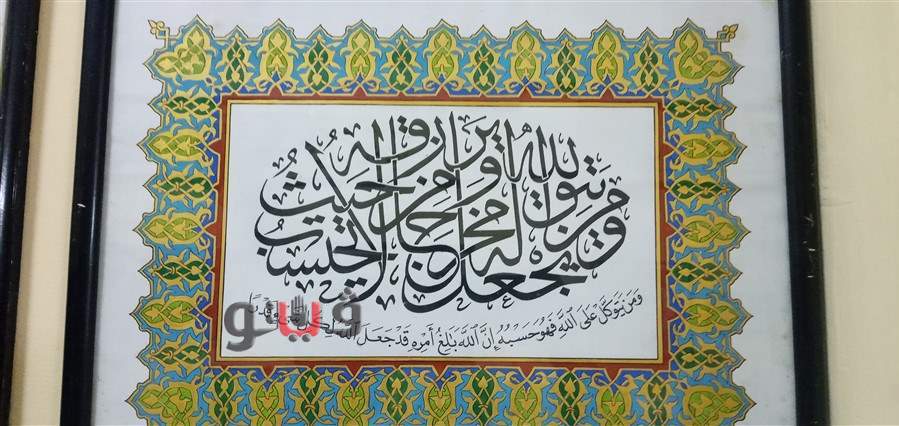 ومن يتق الله يجعل له مخرجا ويرزقه من حيث لا يحتسب
وَمَن يَتَوَكَّلْ عَلَى اللَّهِ فَهُوَ حَسْبُهُ إِنَّ اللَّهَ بَالِغُ أَمْرِهِ قَدْ جَعَلَ اللَّهُ لِكُلِّ شَيْءٍ قَدْرًا
ڤيتو